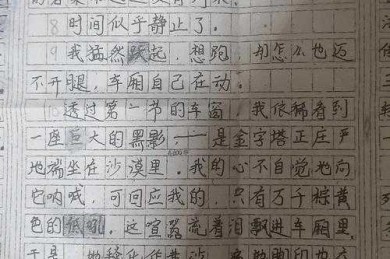 时间似乎静止了。
9 我猛然跃起，想跑，却怎么也迈
不开腿，车厢自己在动。
透过第一节的车窗，我依稀看到
一座巨大的黑影，——是金字塔正庄严
地端坐在沙漠里。我的心不自觉地向
它呐喊，可回应我的，只有万千棕黄
色的低吼。这喧嚣流着泪飘进车厢里